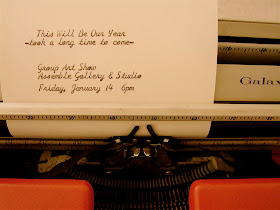 This Will Be Our Year
-took a long time to come-
Group Art Show
Assemble Gallery & Studio
Friday, January 14 6pm
Galax